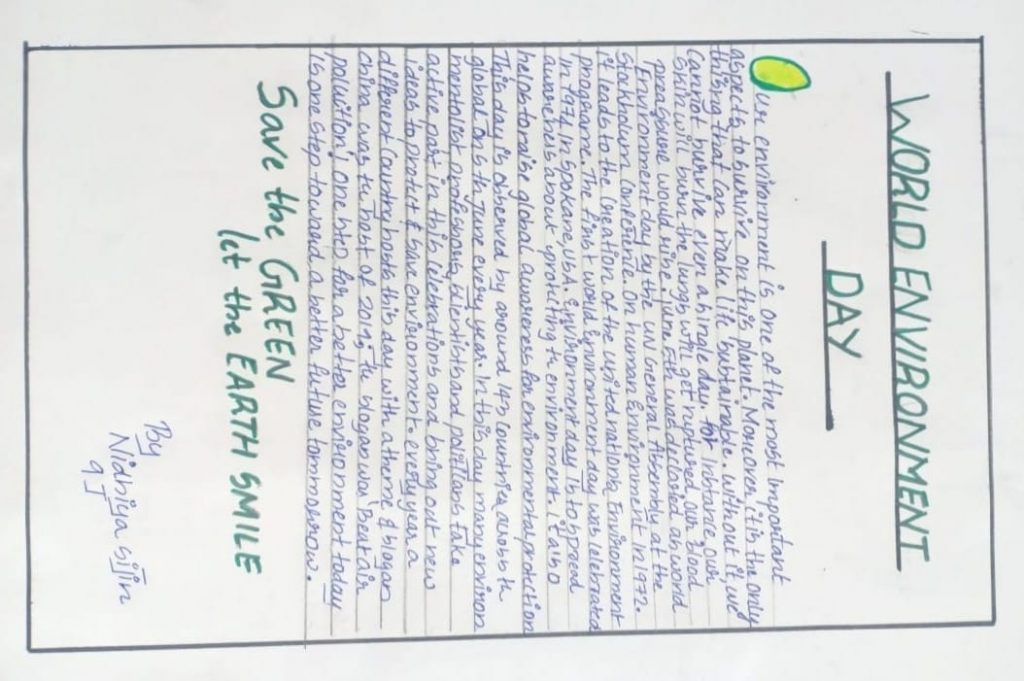 WORLD ENVIRONMENT
DAY
Our environment is one of the most important
aspects to survive on this planet. Moreover, it is the only
thing that can make life sustainable. without it, we
cannot survive even a single day. for instance, our
Skin will burn the lungs will get ruptured our blood
preassure would rise. June 5th was declared as world
Environment day by the UN General Assembly at the
Stockholum Conference. On human Environment in 1972.
it leads to the creation of the united nations Environment
programme. The first world Environment day was celebrated
in 1974 in Spokane, USA. Environment day is to spread
awareness about protecting the environment. It also
helps to raise global awareness for environmental protection
This day is observed by around 143 countries across the
global on 5th June every year. In this day many environ
mentalist professors, scientists and politians take
active part in this celebrations and bring out new
ideas to protect & save environment. every year a
different country hosts this day with a theme & slogan
china was the host of 2019, the slogan was, 'Beat air
pollution'. one step for a better environment today
is one step toward a better future tommorow.
Save the GREEN
let the EARTH SMILE
By
Nidhiya Sijin
9 I